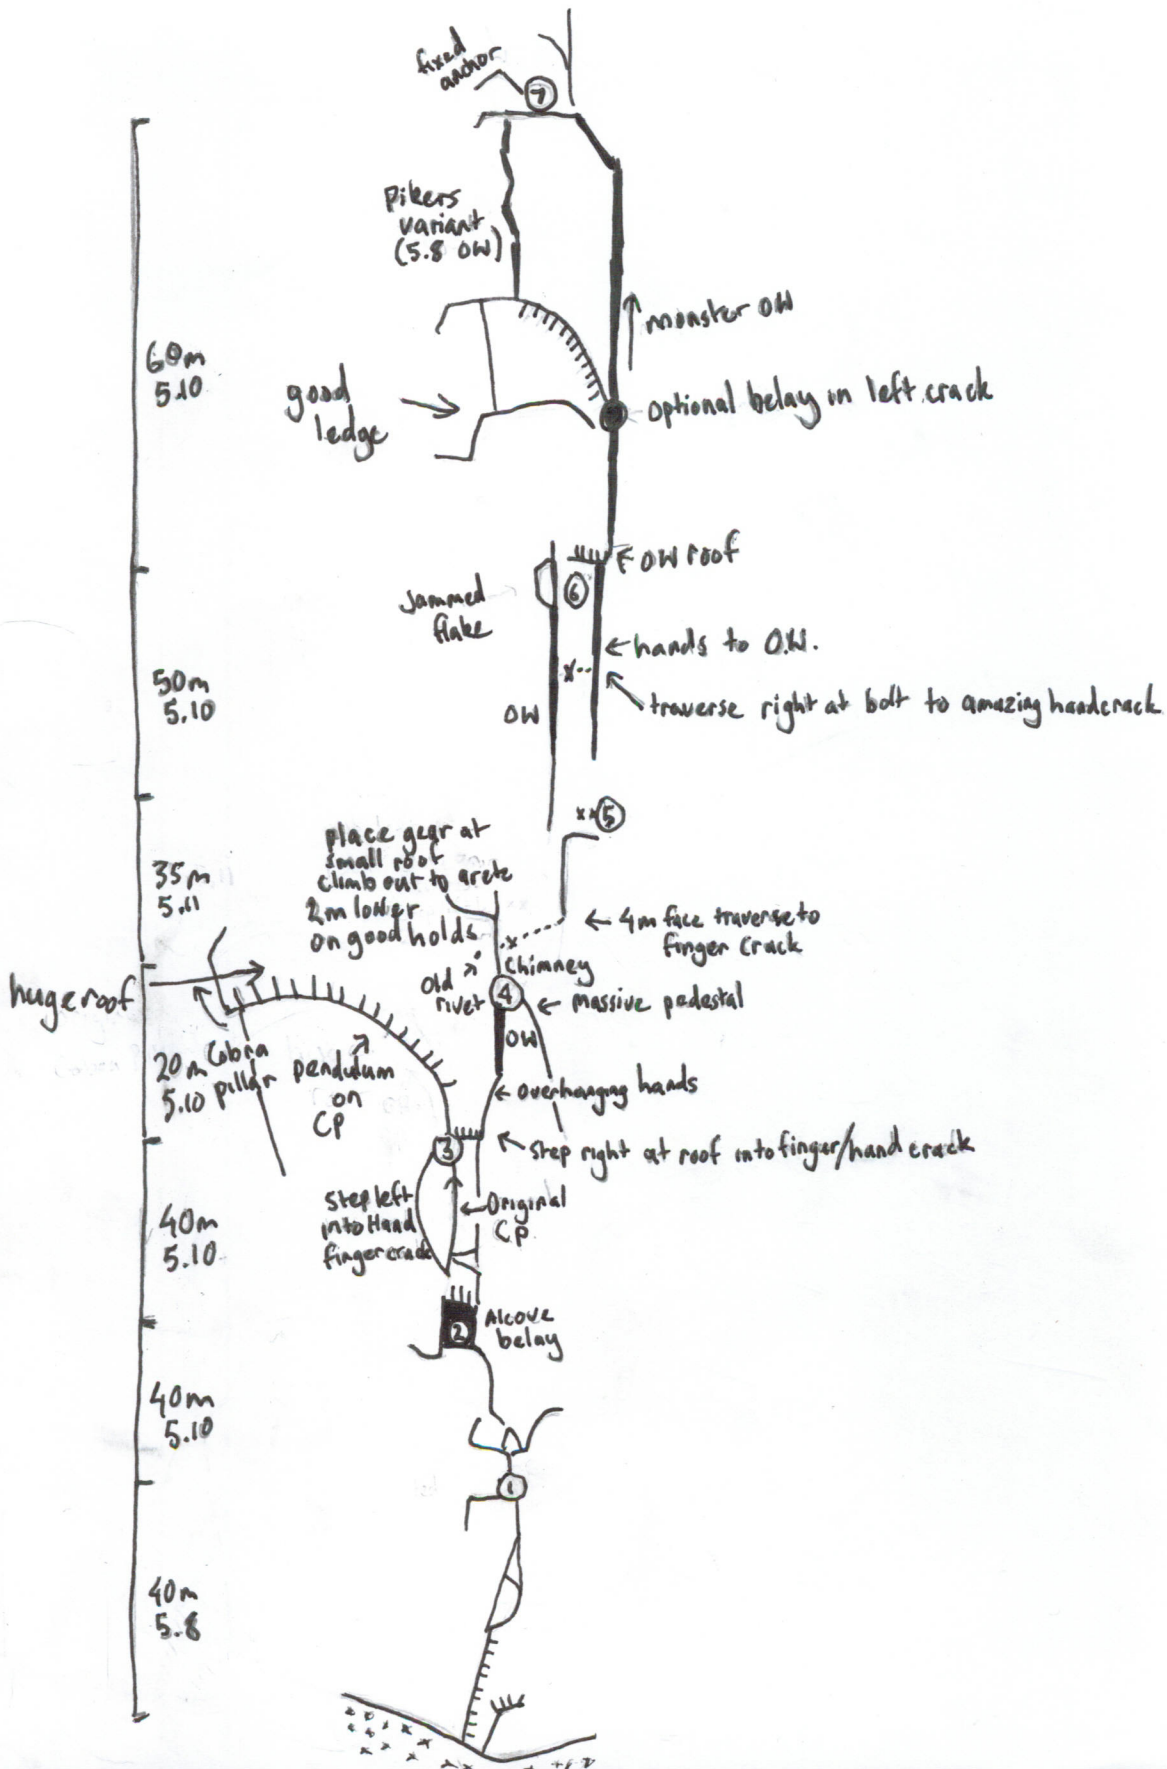 fixed
anchor
7
Pikers
variant
(5.8 OW)
monster OW
60m
5.10
good
ledge
optional belay in left crack
OW roof
6
Jammed
flake
hands to O.W.
x
50m
5.10
OW
traverse right at bolt to amazing handcrack
xx 5
place gear at
small roof
climb out to arete
2m lower
on good holds
35m
5.11
4m face traverse to
finger crack
x
Old
rivet
Chimney
huge roof
4
massive pedestal
OW
20m
5.10
Cobra
pillar
pendulum
on
CP
overhanging hands
3
step right at roof into finger/hand crack
step left
into Hand
finger crack
Original
CP
40m
5.10
2
Alcove
belay
40m
5.10
1
40m
5.8